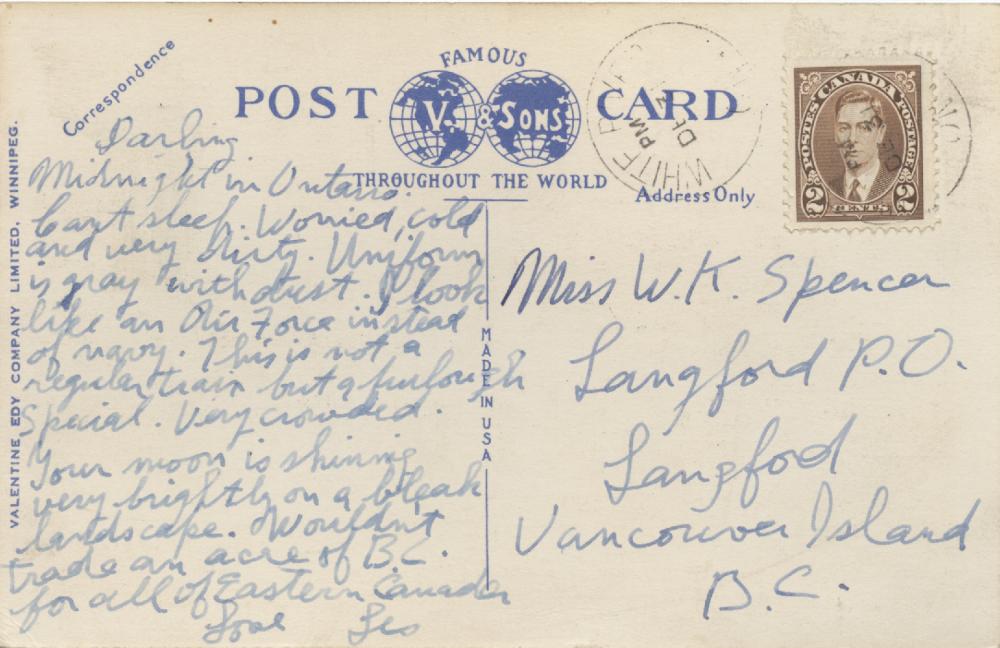 Correspondence
POST CARD
FAMOUS
V. & SONS
THROUGHOUT THE WORLD
Address Only
WHITE RIVER
PM
DE
POSTES CANADA POSTAGE
2 CENTS 2
VALENTINE EDY COMPANY LIMITED, WINNIPEG.
MADE IN USA
Darling
Midnight in Ontario.
Cant sleep. Worried, cold
and very dirty. Uniform
is gray with dust. I look
like an Air Force instead
of navy. This is not a
regular train but a furlough
Special. Very crowded.
Your moon is shining
very brightly on a bleak
landscape. Wouldn't
trade an acre of B.C.
for all of Eastern Canada
Love Les
Miss W.K. Spencer
Langford P.O.
Langfod
Vancouver Island
B.C.